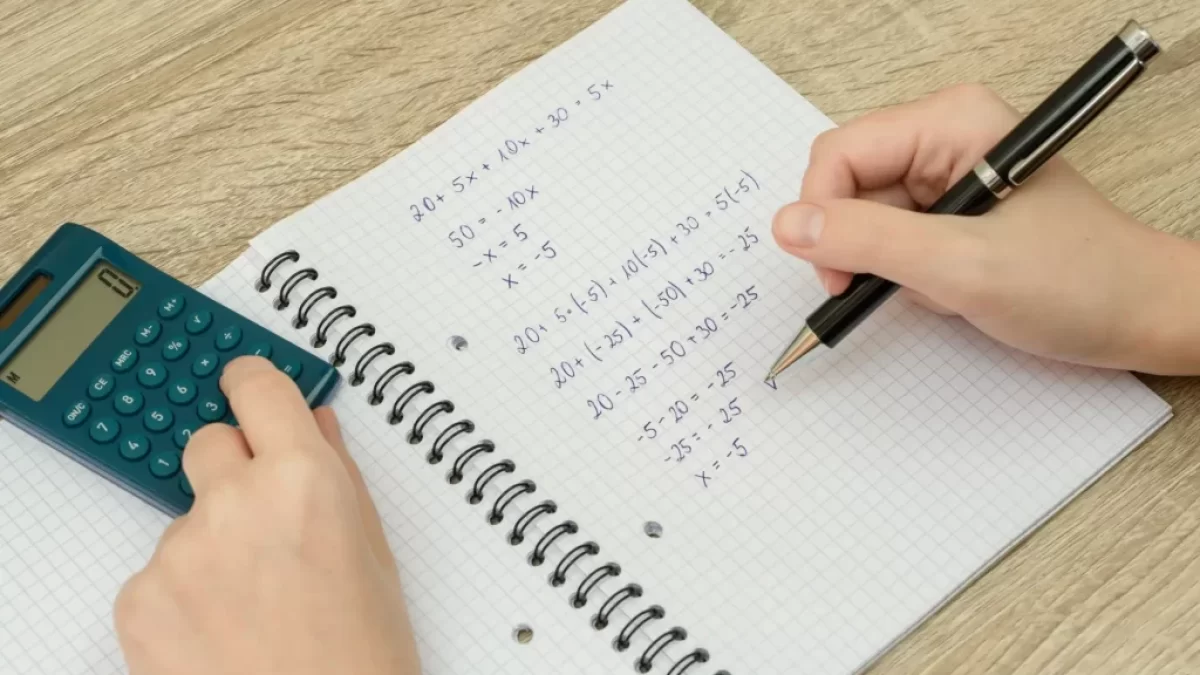 20 + 5x + 10x + 30 = 5x
50 = -10x
-x = 5
x = -5
20 + 5·(-5) + 10(-5) + 30 = 5(-5)
20 + (-25) + (-50) + 30 = -25
20 - 25 - 50 + 30 = -25
-5 - 20 = -25
-25 = -25
x = -5
0.
M
M+
M- √
MRC % ÷
CE 9 × -
ON/C 8 6 =
7 5 3
4 2
1